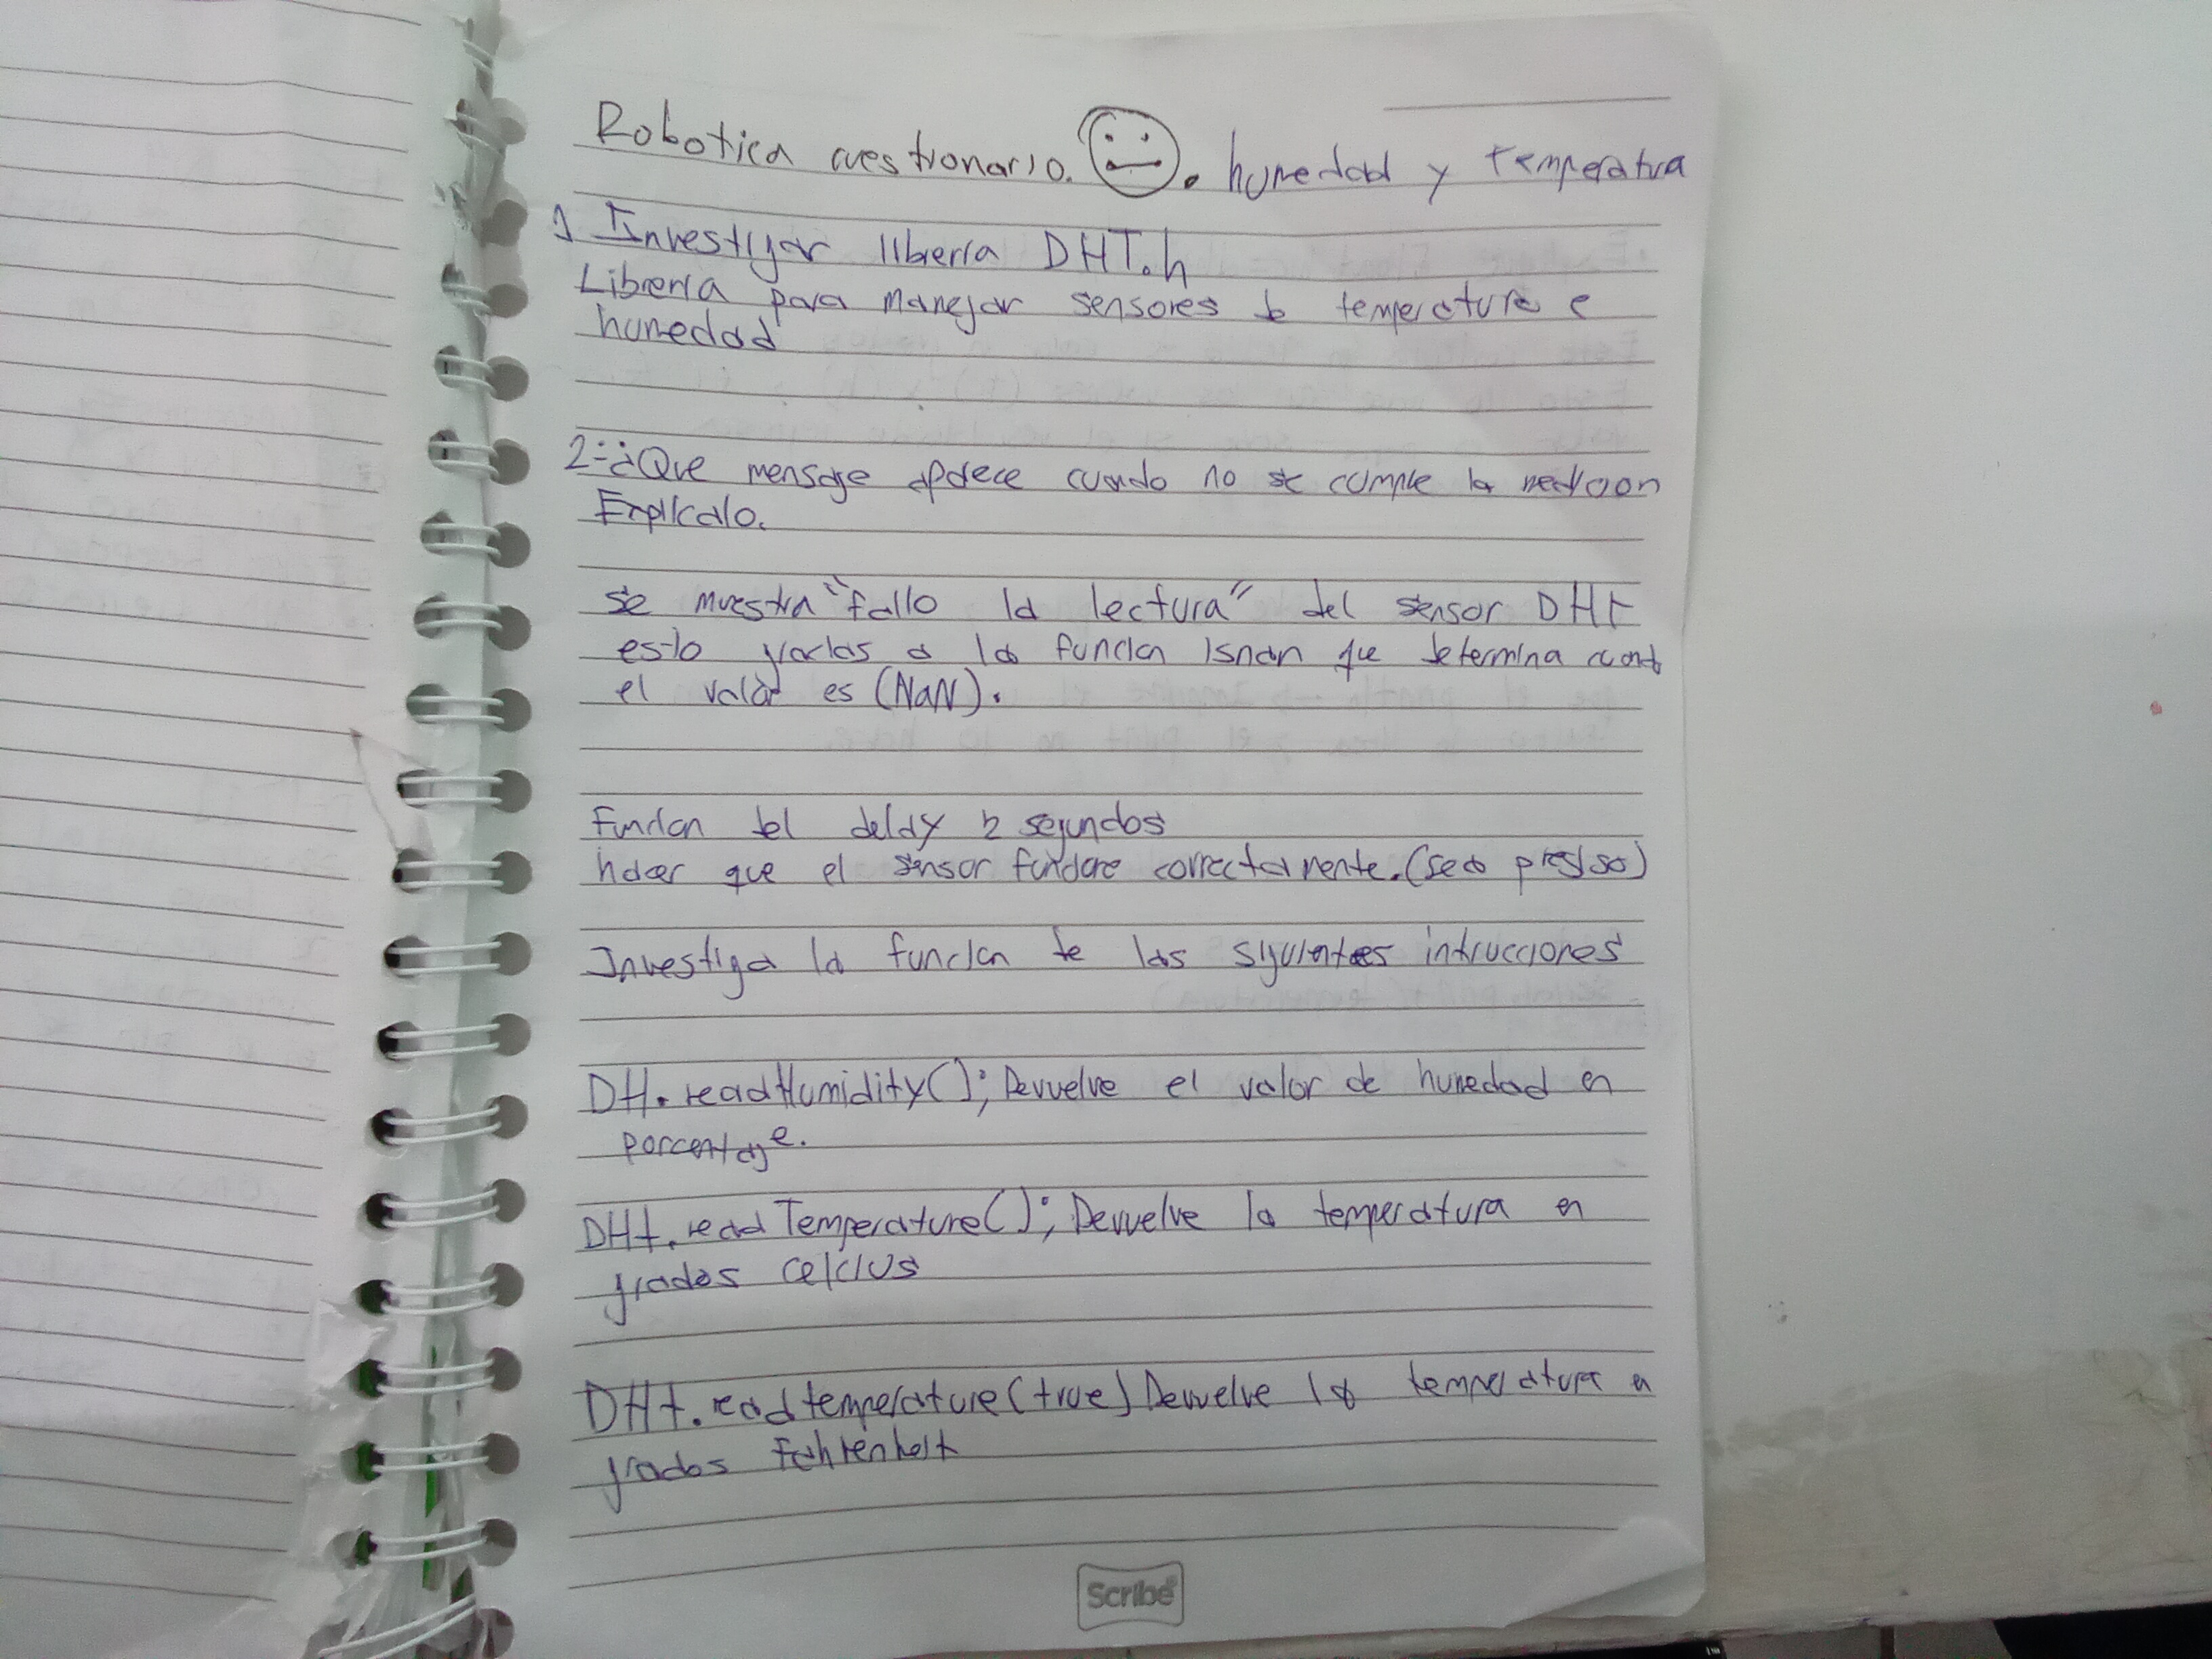 Robotica cuestionario. . humedad y temperatura
1 Investigar libreria DHT.h
Libreria para manejar sensores de temperatura e
humedad
2-¿Que mensaje aparece cuando no se cumple la
Explicalo.
se muestra "fallo la lectura" del sensor DHt
esto gracias a la funcion isnan que determina cuando
el valor es (NaN).
Funcion del delay 2 segundos
hacer que el sensor funcione correctamente. (sea preciso)
Investiga la funcion de las siguientes intrucciones
DH.readHumidity(); Devuelve el valor de humedad en
porcentaje.
DHt.readTemperature(); Devuelve la temperatura en
grados celcius
DHt.readtemperature(true) Devuelve la temperatura en
grados fahrenheit
Scribe